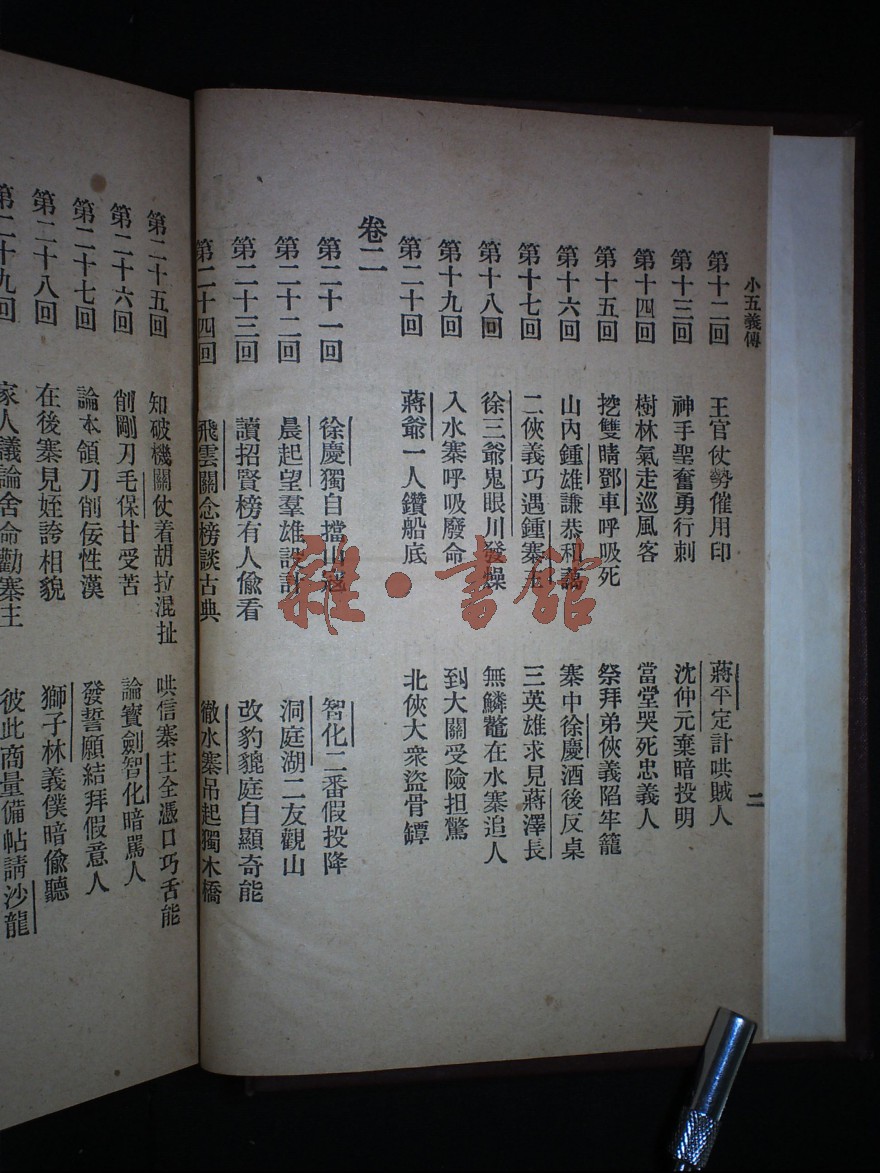 小五義傳
二
第十二回 王官仗勢催用印 蔣平定計哄賊人
第十三回 神手聖奮勇行刺 沈仲元棄暗投明
第十四回 樹林氣走巡風客 當堂哭死忠義人
第十五回 挖雙睛鄧車呼吸死 祭拜弟俠義陷牢籠
第十六回 山內鍾雄謙恭和藹 寨中徐慶酒後反桌
第十七回 二俠義巧遇鍾寨主 三英雄求見蔣澤長
第十八回 徐三爺鬼眼川發燥 無鱗鼈在水寨追人
第十九回 入水寨呼吸廢命 到大關受險担驚
第二十回 蔣爺一人鑽船底 北俠大衆盜骨罈
卷二
第二十一回 徐慶獨自擋山寇 智化二番假投降
第二十二回 晨起望羣雄設計 洞庭湖二友觀山
第二十三回 讀招賢榜有人偸看 改豹貔庭自顯奇能
第二十四回 飛雲關念榜談古典 徹水寨吊起獨木橋
第二十五回 知破機關仗着胡拉混扯 哄信寨主全憑口巧舌能
第二十六回 削剛刀毛保甘受苦 論寳劍智化暗駡人
第二十七回 論本領刀削佞性漢 發誓願結拜假意人
第二十八回 在後寨見姪誇相貌 獅子林義僕暗偸聽
第二十九回 家人議論舍命勸寨主 彼此商量備帖請沙龍
雜·書館